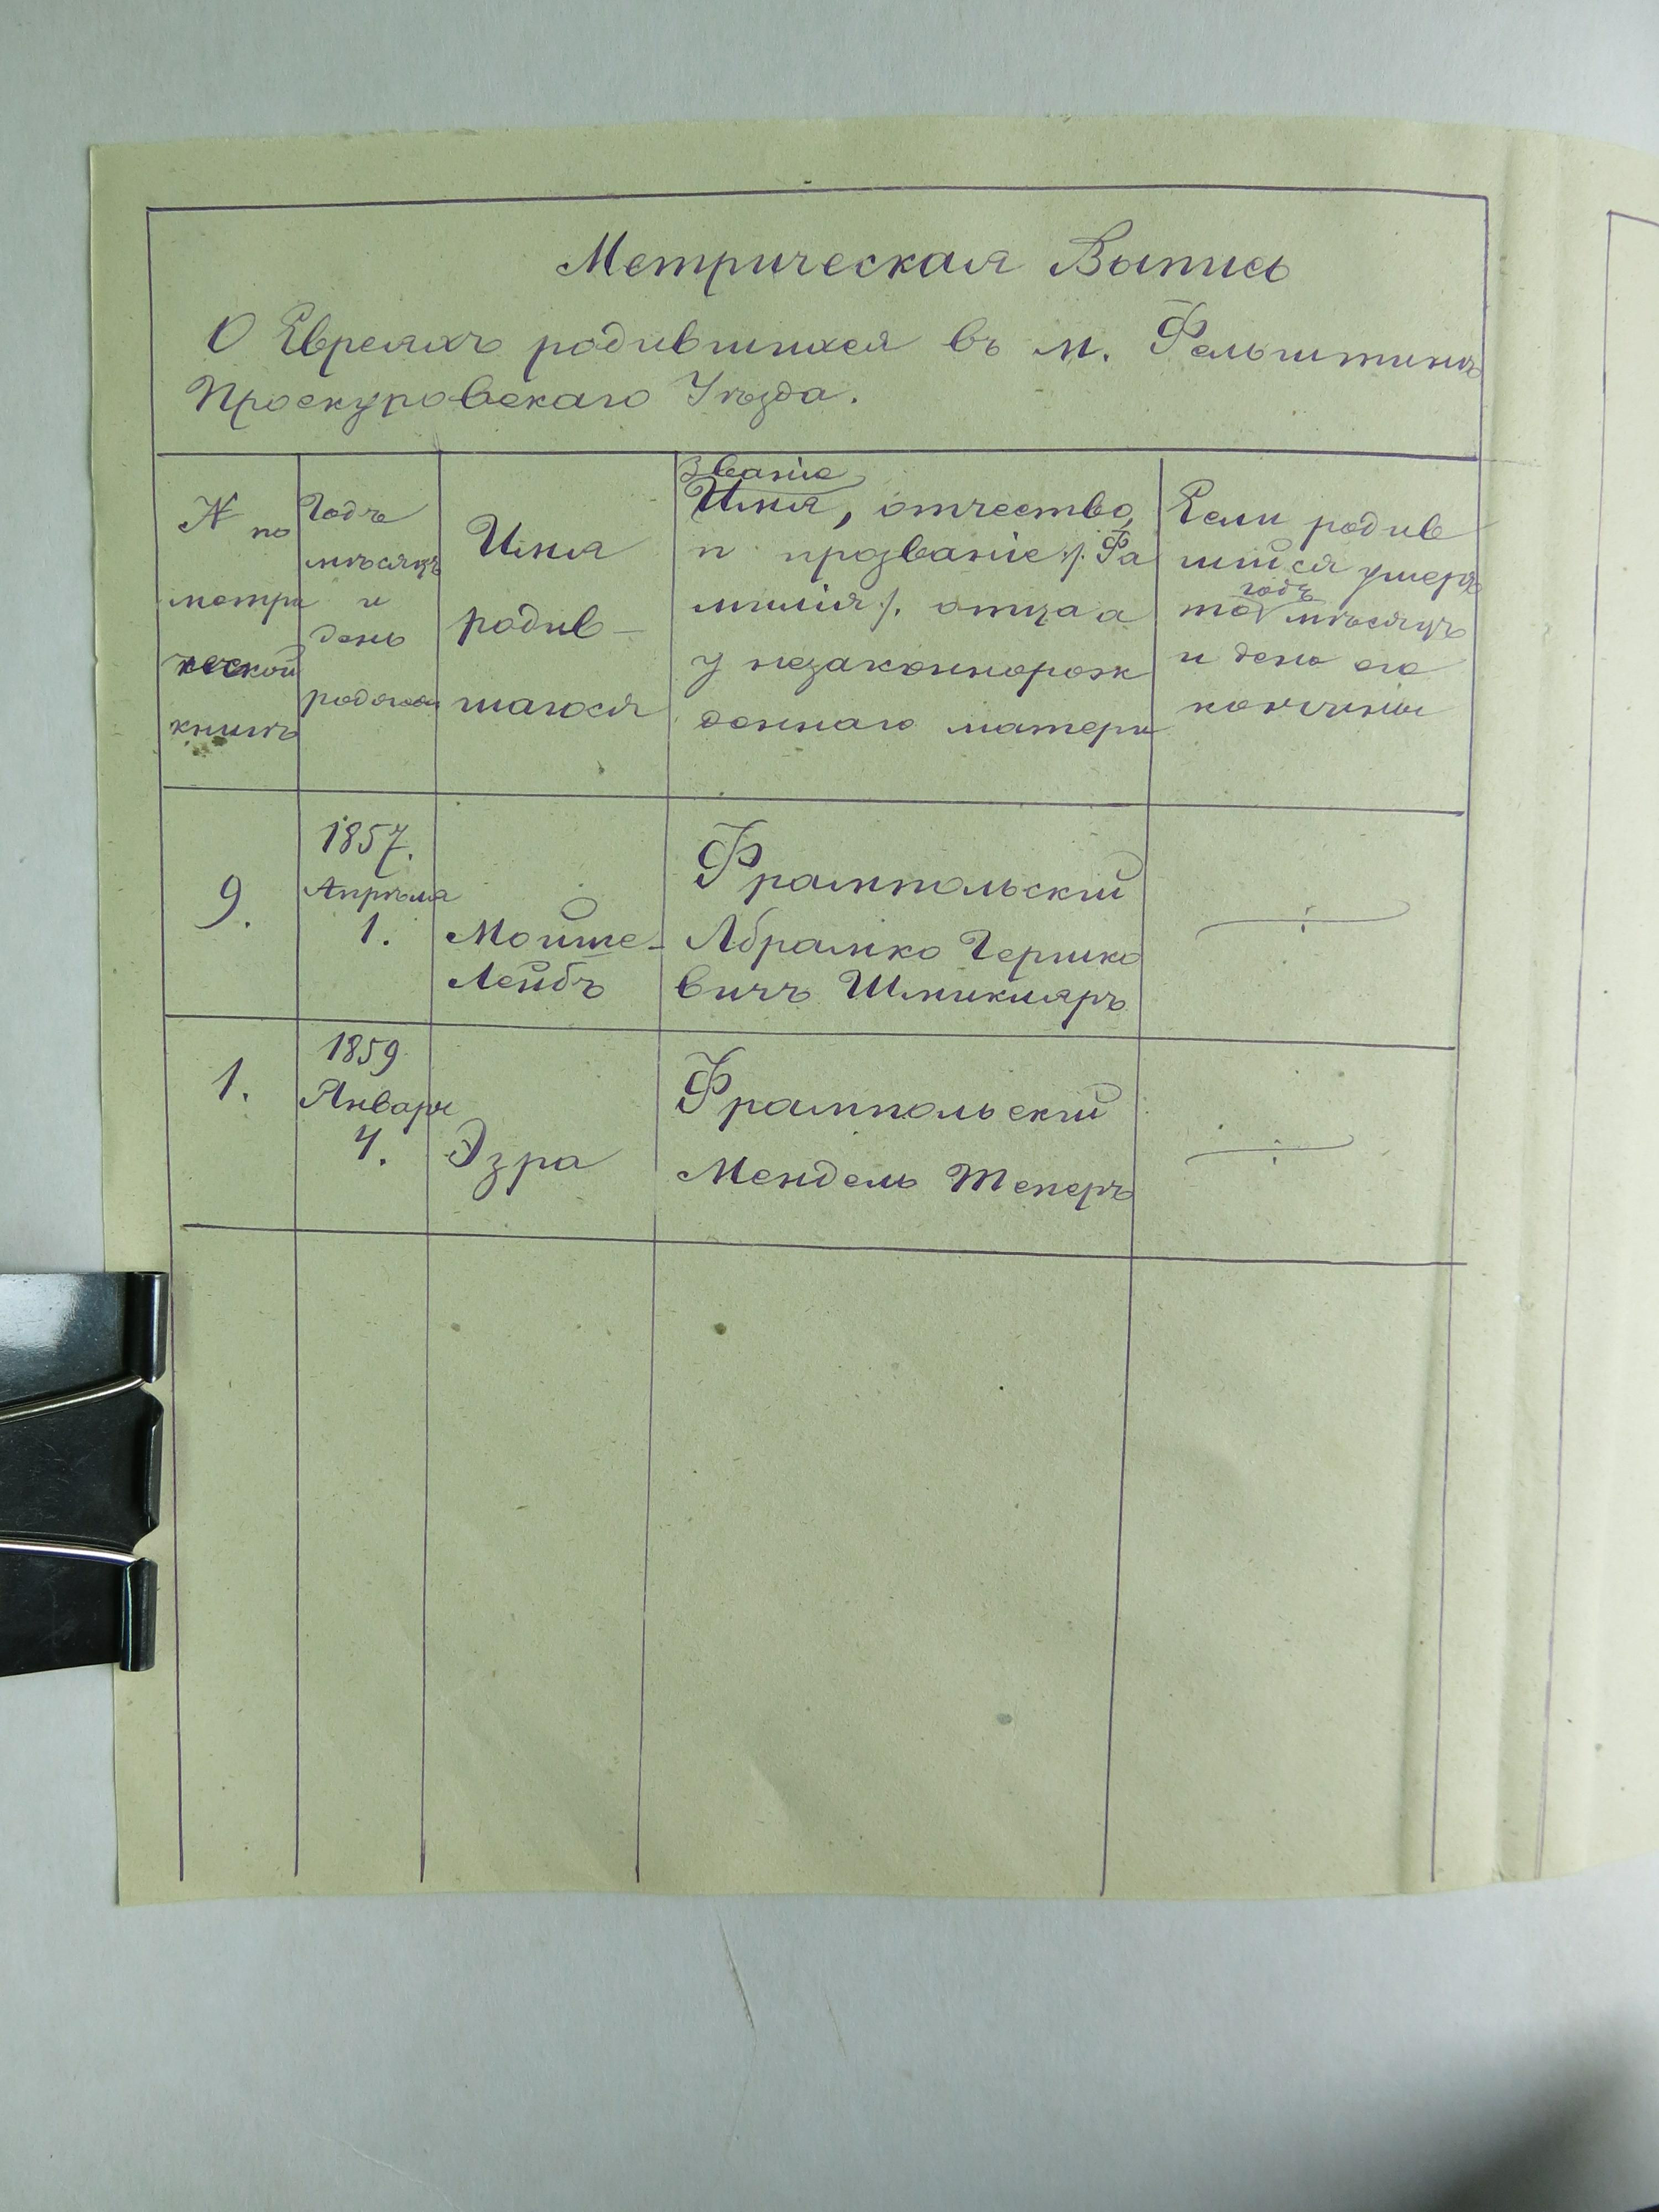 Метрическая Выпись
О Евреяхъ родившихся въ м. Фельштинѣ
Проскуровскаго Уѣзда.
№ по
метри
ческой
книгѣ
Годъ
мѣсяцъ
и
день
Имя
родив-
шагося
Званіе
Имя, отчество,
и прозваніе /. Фа
милія /. отца а
у незаконнорож
деннаго матери
Если родив
шійся умеръ
годъ
то мѣсяцъ
и день его
кончины
9.
1857.
Апрѣля
1.
Мойше-
Лейбъ
Фрампольскій
Абрамко Гершко
вичъ Шмикляръ
1.
1859
Января
4.
Эзра
Фрампольскій
Мендель Теперъ